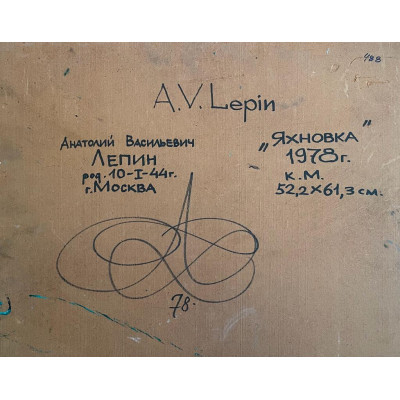 488
A.V. Lepin
Анатолий Васильевич
Лепин
род. 10-I-44г.
г. Москва
„Яхновка"
1978 г.
к.м.
52,2 × 61,3 см.
78.